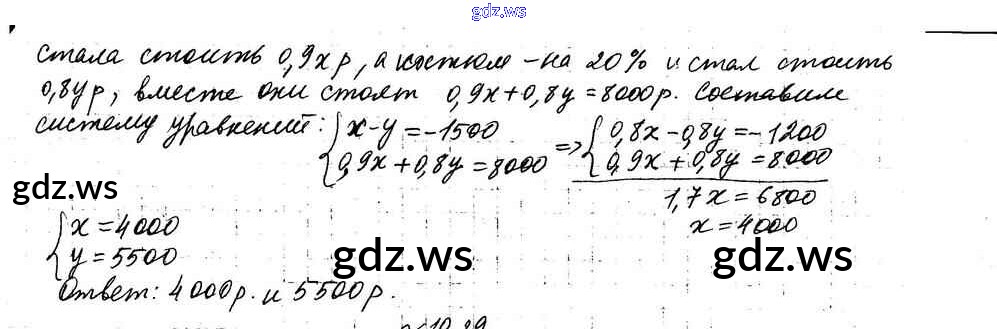 gdz.ws
стала стоить 0,9x р, а костюм - на 20% и стал стоить
0,8y р, вместе они стоят 0,9x+0,8y=8000р. Составим
систему уравнений: { x-y=-1500 => { 0,8x-0,8y=-1200
0,9x+0,8y=8000 0,9x+0,8y=8000
gdz.ws
1,7x=6800
{ x=4000 x=4000
y=5500
gdz.ws gdz.ws
Ответ: 4000р. и 5500р.